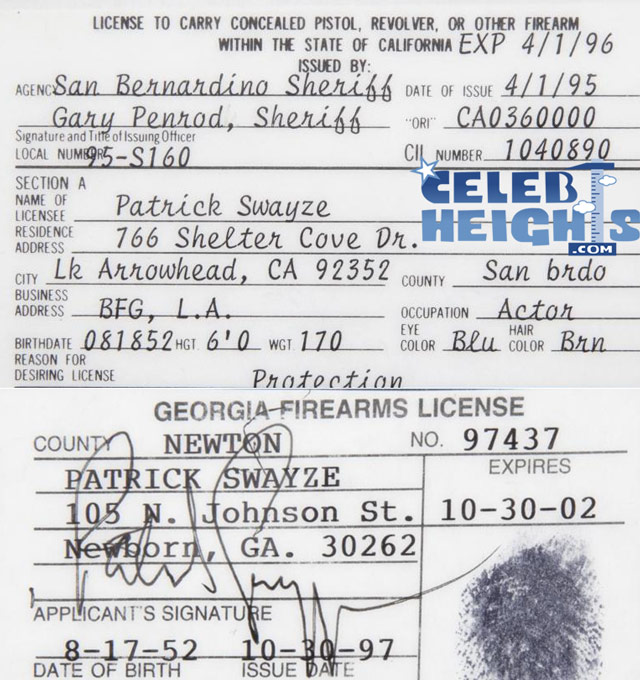 LICENSE TO CARRY CONCEALED PISTOL, REVOLVER, OR OTHER FIREARM
WITHIN THE STATE OF CALIFORNIA EXP 4/1/96
ISSUED BY:
AGENCY San Bernardino Sheriff DATE OF ISSUE 4/1/95
Gary Penrod, Sheriff "ORI" CA0360000
Signature and Title of Issuing Officer
LOCAL NUMBER 95-S160 CII NUMBER 1040890
CELEB HEIGHTS .COM
SECTION A
NAME OF LICENSEE Patrick Swayze
RESIDENCE ADDRESS 766 Shelter Cove Dr.
CITY Lk Arrowhead, CA 92352 COUNTY San brdo
BUSINESS ADDRESS BFG, L.A. OCCUPATION Actor
BIRTHDATE 081852 HGT 6'0 WGT 170 EYE COLOR Blu HAIR COLOR Brn
REASON FOR DESIRING LICENSE Protection
GEORGIA FIREARMS LICENSE
COUNTY NEWTON NO. 97437
PATRICK SWAYZE EXPIRES
105 N. Johnson St. 10-30-02
Newborn, GA. 30262
APPLICANT'S SIGNATURE
8-17-52 10-30-97
DATE OF BIRTH ISSUE DATE